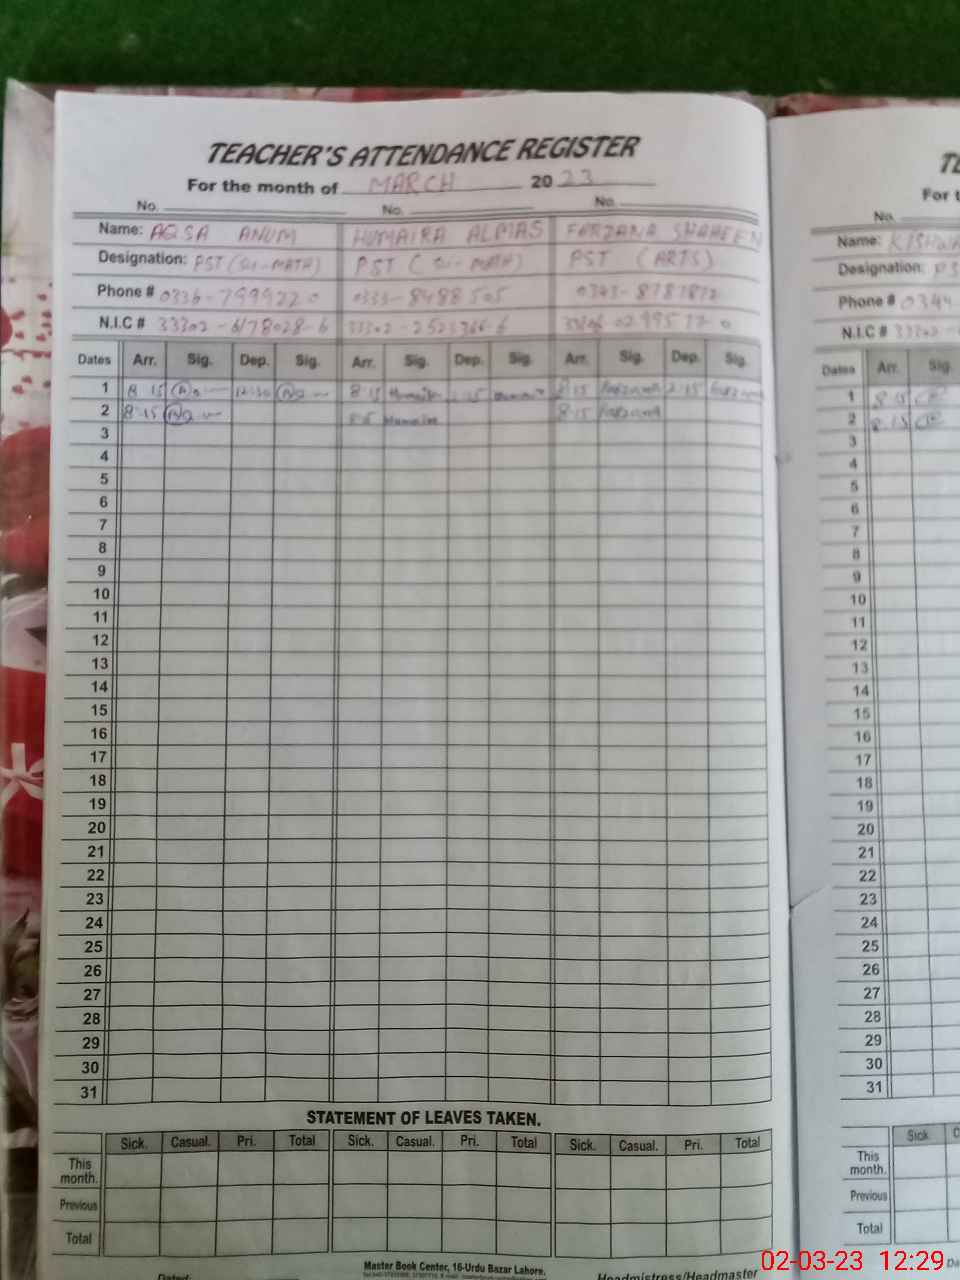 TEACHER'S ATTENDANCE REGISTER
For the month of MARCH 2023
No. No. No.
Name: AQSA ANUM HUMAIRA ALMAS FARZANA SHAHEEN
Designation: PST (Sci-MATH) PST (Sci-MATH) PST (ARTS)
Phone # 0336-7999220 0333-8488505 0343-8787872
N.I.C # 33302-6178028-6
Dates Arr. Sig. Dep. Sig. Arr. Sig. Dep. Sig. Arr. Sig. Dep. Sig.
1 8 15 12:30 8:15 Humaira 8:15 Farzana 2:15 Farzana
2 8:15 Humaira 8:15 Farzana
3
4
5
6
7
8
9
10
11
12
13
14
15
16
17
18
19
20
21
22
23
24
25
26
27
28
29
30
31
STATEMENT OF LEAVES TAKEN.
Sick. Casual. Pri. Total Sick. Casual. Pri. Total Sick. Casual. Pri. Total
This month.
Previous
Total
Master Book Center, 16-Urdu Bazar Lahore.
Dated: Headmistress/Headmaster
For t
No.
Name:
Designation:
Phone # 0344
N.I.C # 33302
Dates Arr. Sig.
1 8 15
2 8.15
3
4
5
6
7
8
9
10
11
12
13
14
15
16
17
18
19
20
21
22
23
24
25
26
27
28
29
30
31
Sick C
This month.
Previous
Total
02-03-23 12:29